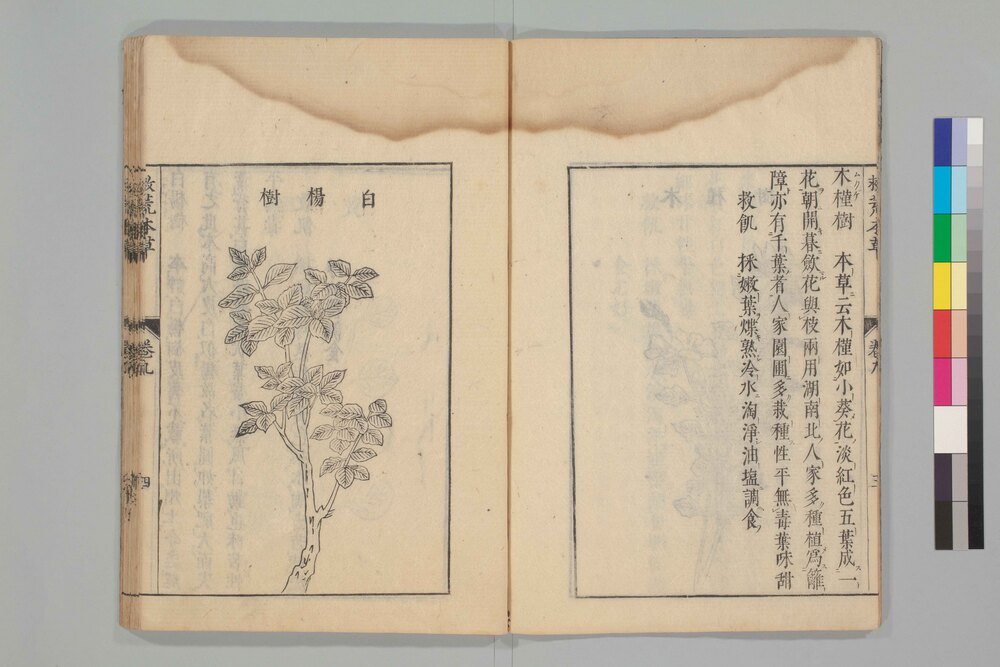 木槿樹 本草云木槿如小葵花淡紅色五葉成一
花朝開暮歛花與枝兩用湖南北人家多種植爲籬
障亦有千葉者人家園圃多栽種性平無毒葉味甜
救飢 採嫩葉煠熟冷水淘淨油塩調食
救荒本草
卷九
三
白楊樹
救荒本草
卷九
四